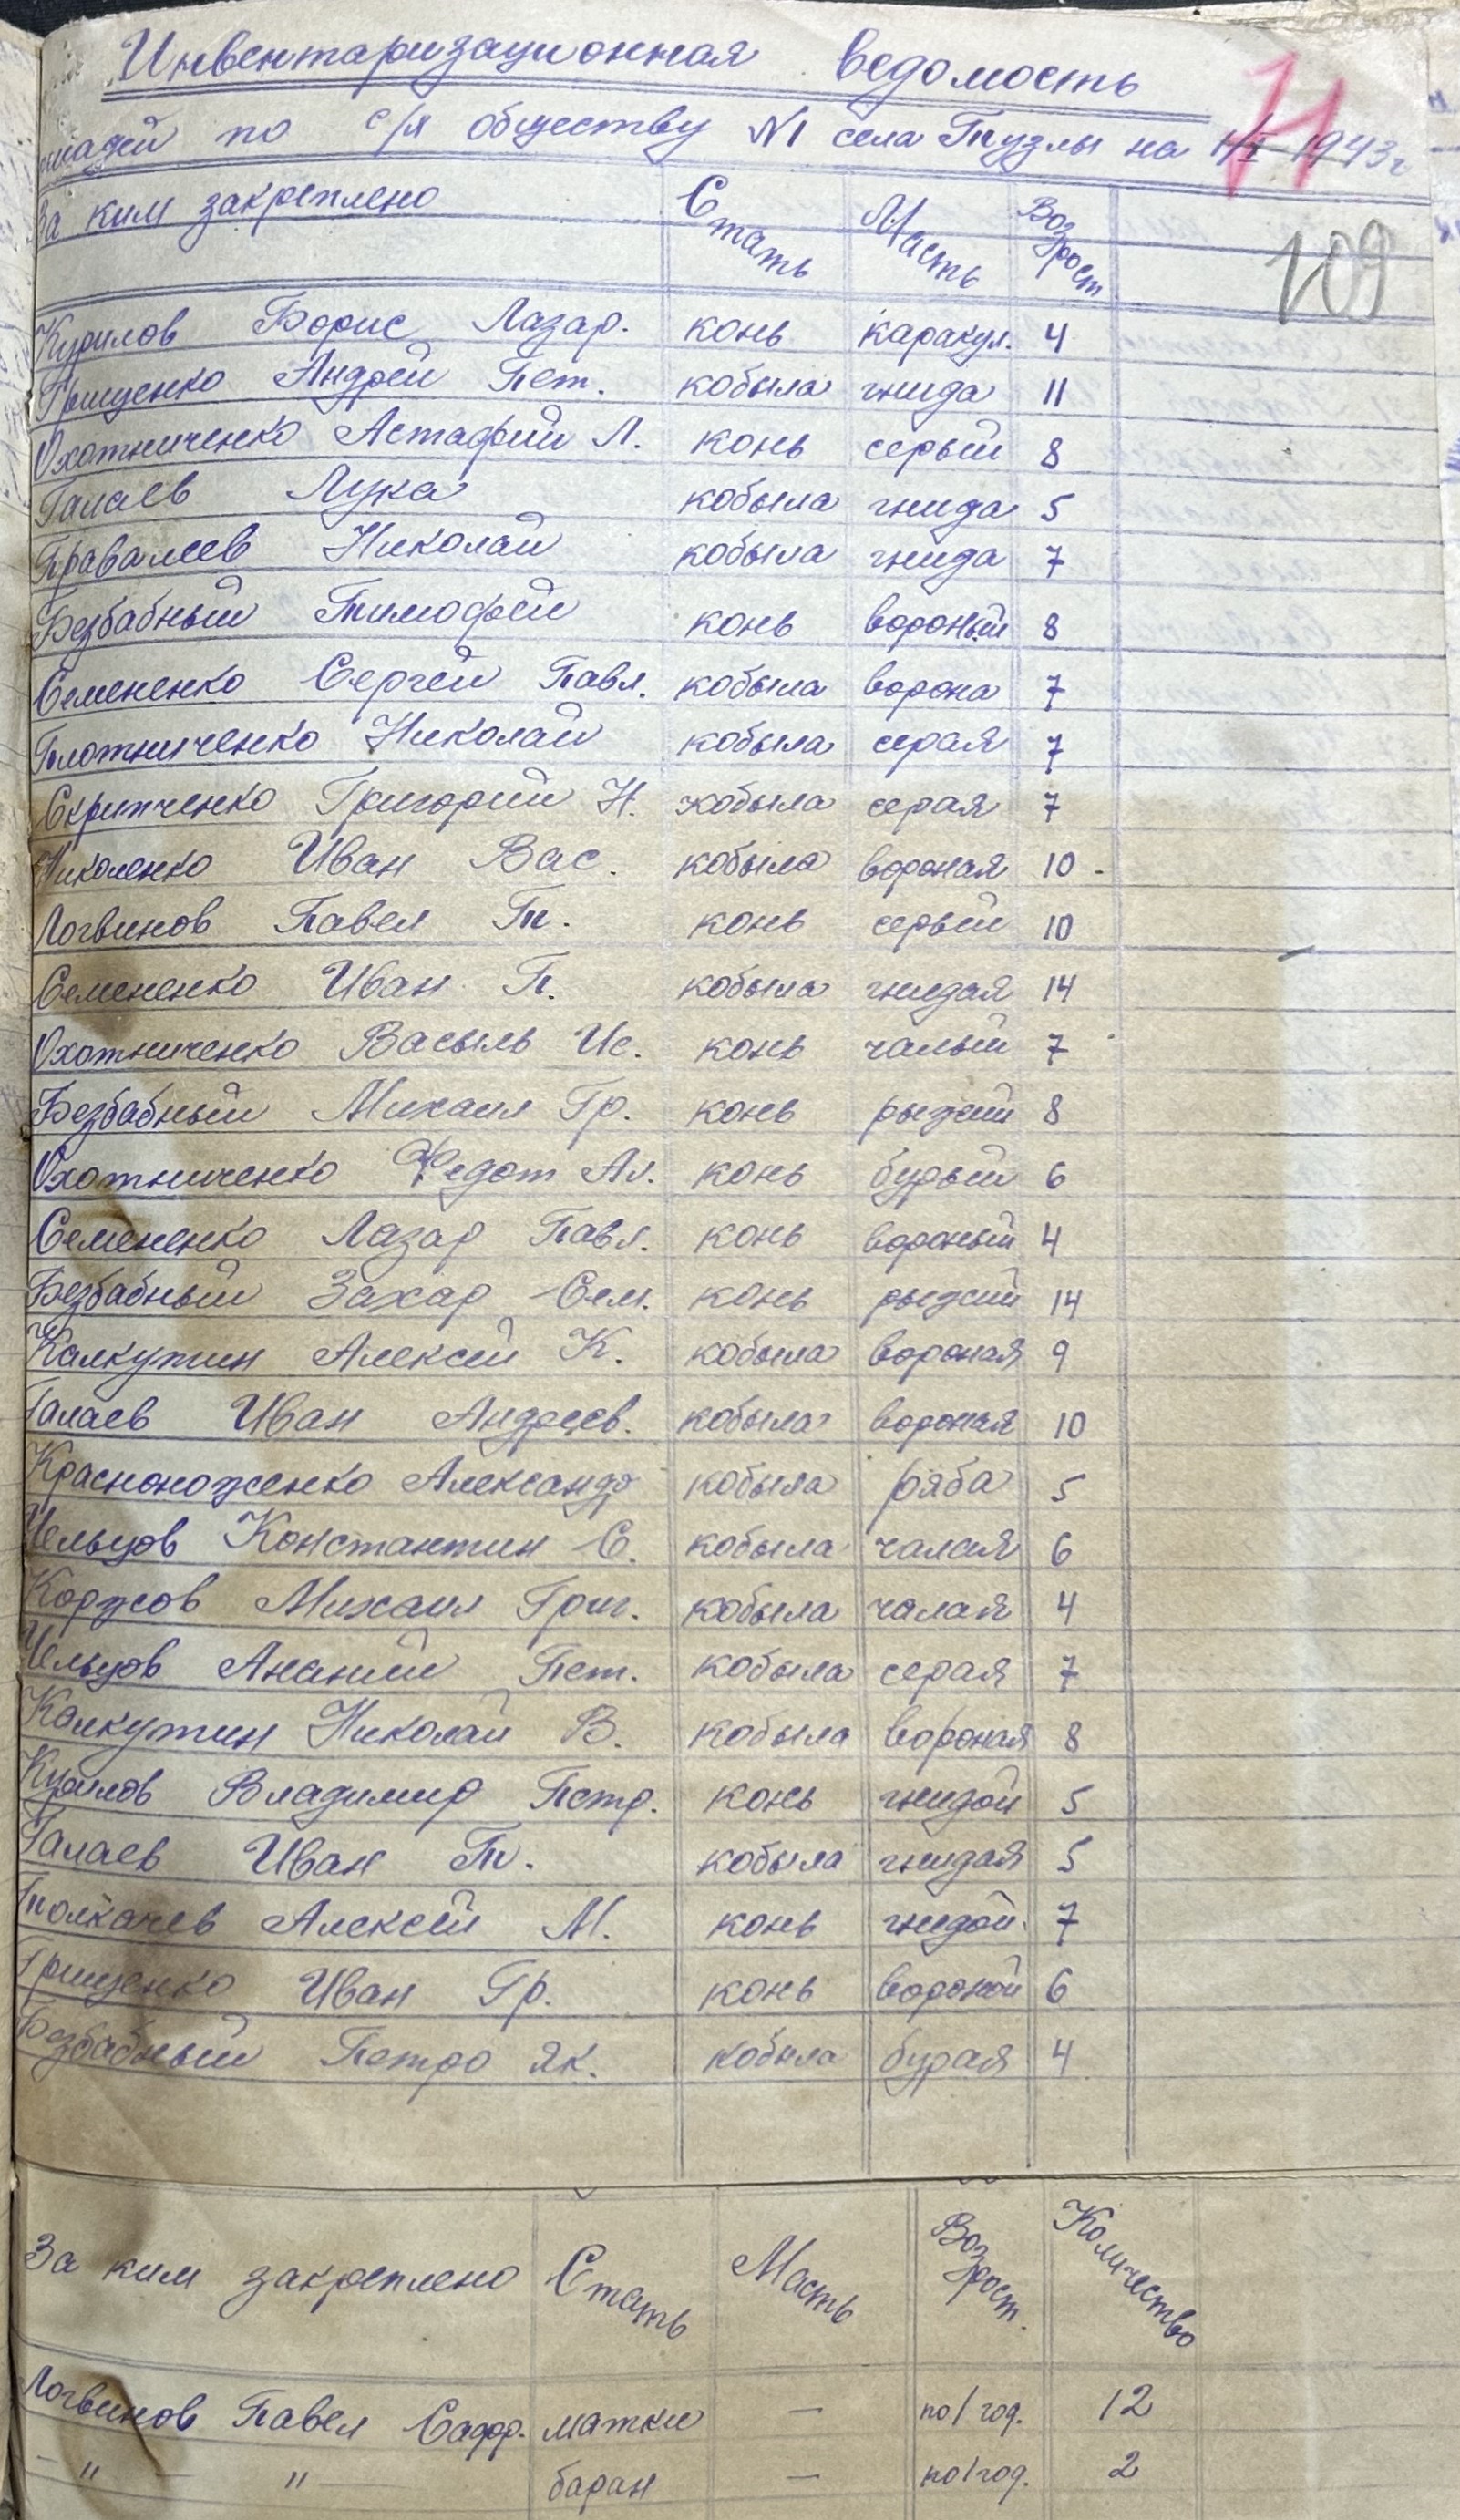 Инвентаризационная ведомость
71
лошадей по с/х обществу №1 села Тузлы на 1/I 1943 г
За ким закреплено Стать Масть Возрост
109
Курилов Борис Лазар. конь каракул. 4
Грищенко Андрей Пет. кобыла гнида 11
Охотниченко Астафий Л. конь серый 8
Галаев Лука кобыла гнида 5
Правалеев Николай кобыла гнида 7
Безбабный Тимофей конь вороный 8
Семененко Сергей Павл. кобыла ворона 7
Плотниченко Николай кобыла серая 7
Скрипченко Григорий Н. кобыла серая 7
Николенко Иван Вас. кобыла вороная 10
Логвинов Павел Т. конь серый 10
Семененко Иван П. кобыла гнидая 14
Охотниченко Васыль Ис. конь чалый 7
Безбабный Михаил Гр. конь рыжий 8
Охотниченко Федот Ал. конь бурый 6
Семененко Лазар Павл. конь вороный 4
Безбабный Захар Сем. конь рыжий 14
Калкутин Алексей К. кобыла вороная 9
Галаев Иван Андреев. кобыла вороная 10
Красноноженко Александр кобыла ряба 5
Чельцов Константин С. кобыла чалая 6
Коржов Михаил Григ. кобыла чалая 4
Чельцов Ананий Пет. кобыла серая 7
Калкутин Николай В. кобыла вороная 8
Курилов Владимир Петр. конь гнидой 5
Галаев Иван Т. кобыла гнидая 5
Толкачев Алексей М. конь гнидой 7
Грищенко Иван Гр. конь вороной 6
Безбабный Петро Як. кобыла бурая 4
За ким закреплено Стать Масть Возрост. Количество
Логвинов Павел Сафр. матки — по 1 год. 12
— " — " баран — по 1 год. 2